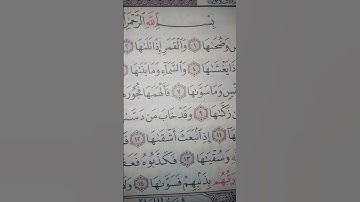 بِسْمِ اللَّهِ الرَّحْمَٰ
وَضُحَىٰهَا ١ وَالْقَمَرِ إِذَا تَلَىٰهَا ٢
ذَا يَغْشَىٰهَا ٤ وَالسَّمَآءِ وَمَا بَنَىٰهَا
سٍ وَمَا سَوَّىٰهَا ٧ فَأَلْهَمَهَا فُجُورَ
زَكَّىٰهَا ٩ وَقَدْ خَابَ مَن دَسَّىٰ
١١ إِذِ انۢبَعَثَ أَشْقَىٰهَا ١٢
وَسُقْيَٰهَا ١٣ فَكَذَّبُوهُ فَعَقَ
رَبُّهُم بِذَنۢبِهِمْ فَسَوَّىٰهَا ١٤ وَلَا